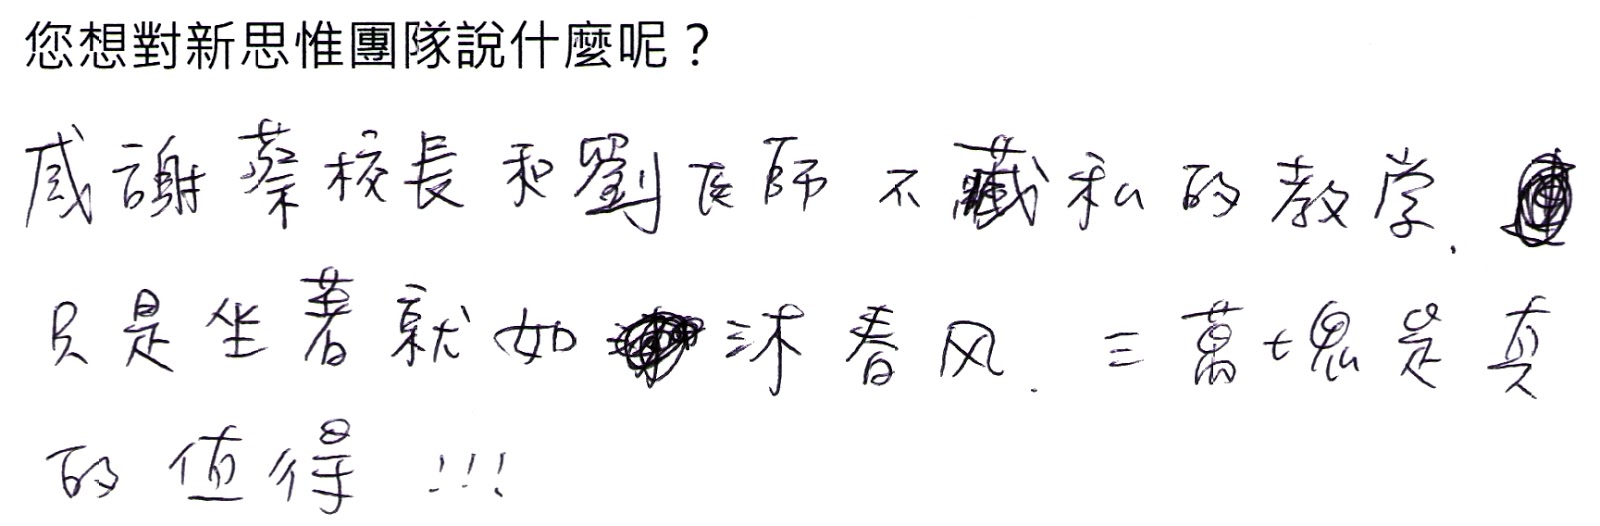 您想對新思惟團隊說什麼呢？
感謝蔡校長和劉医師不藏私的教学.
只是坐著就如沐春风. 三萬塊是真
的值得 !!!